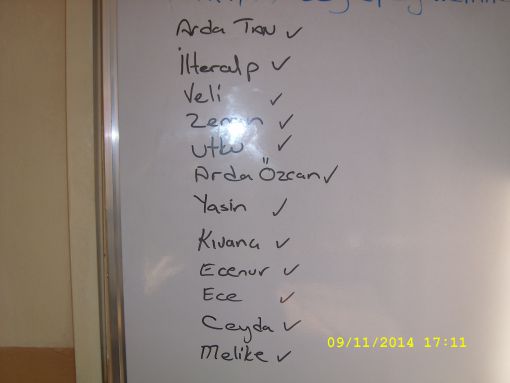 Arda Tan ✓
İlteralp ✓
Veli ✓
✓
Utku ✓
Arda Özcan ✓
Yasin ✓
Kıvanç ✓
Ecenur ✓
Ece ✓
Ceyda ✓
Melike ✓
09/11/2014 17:11